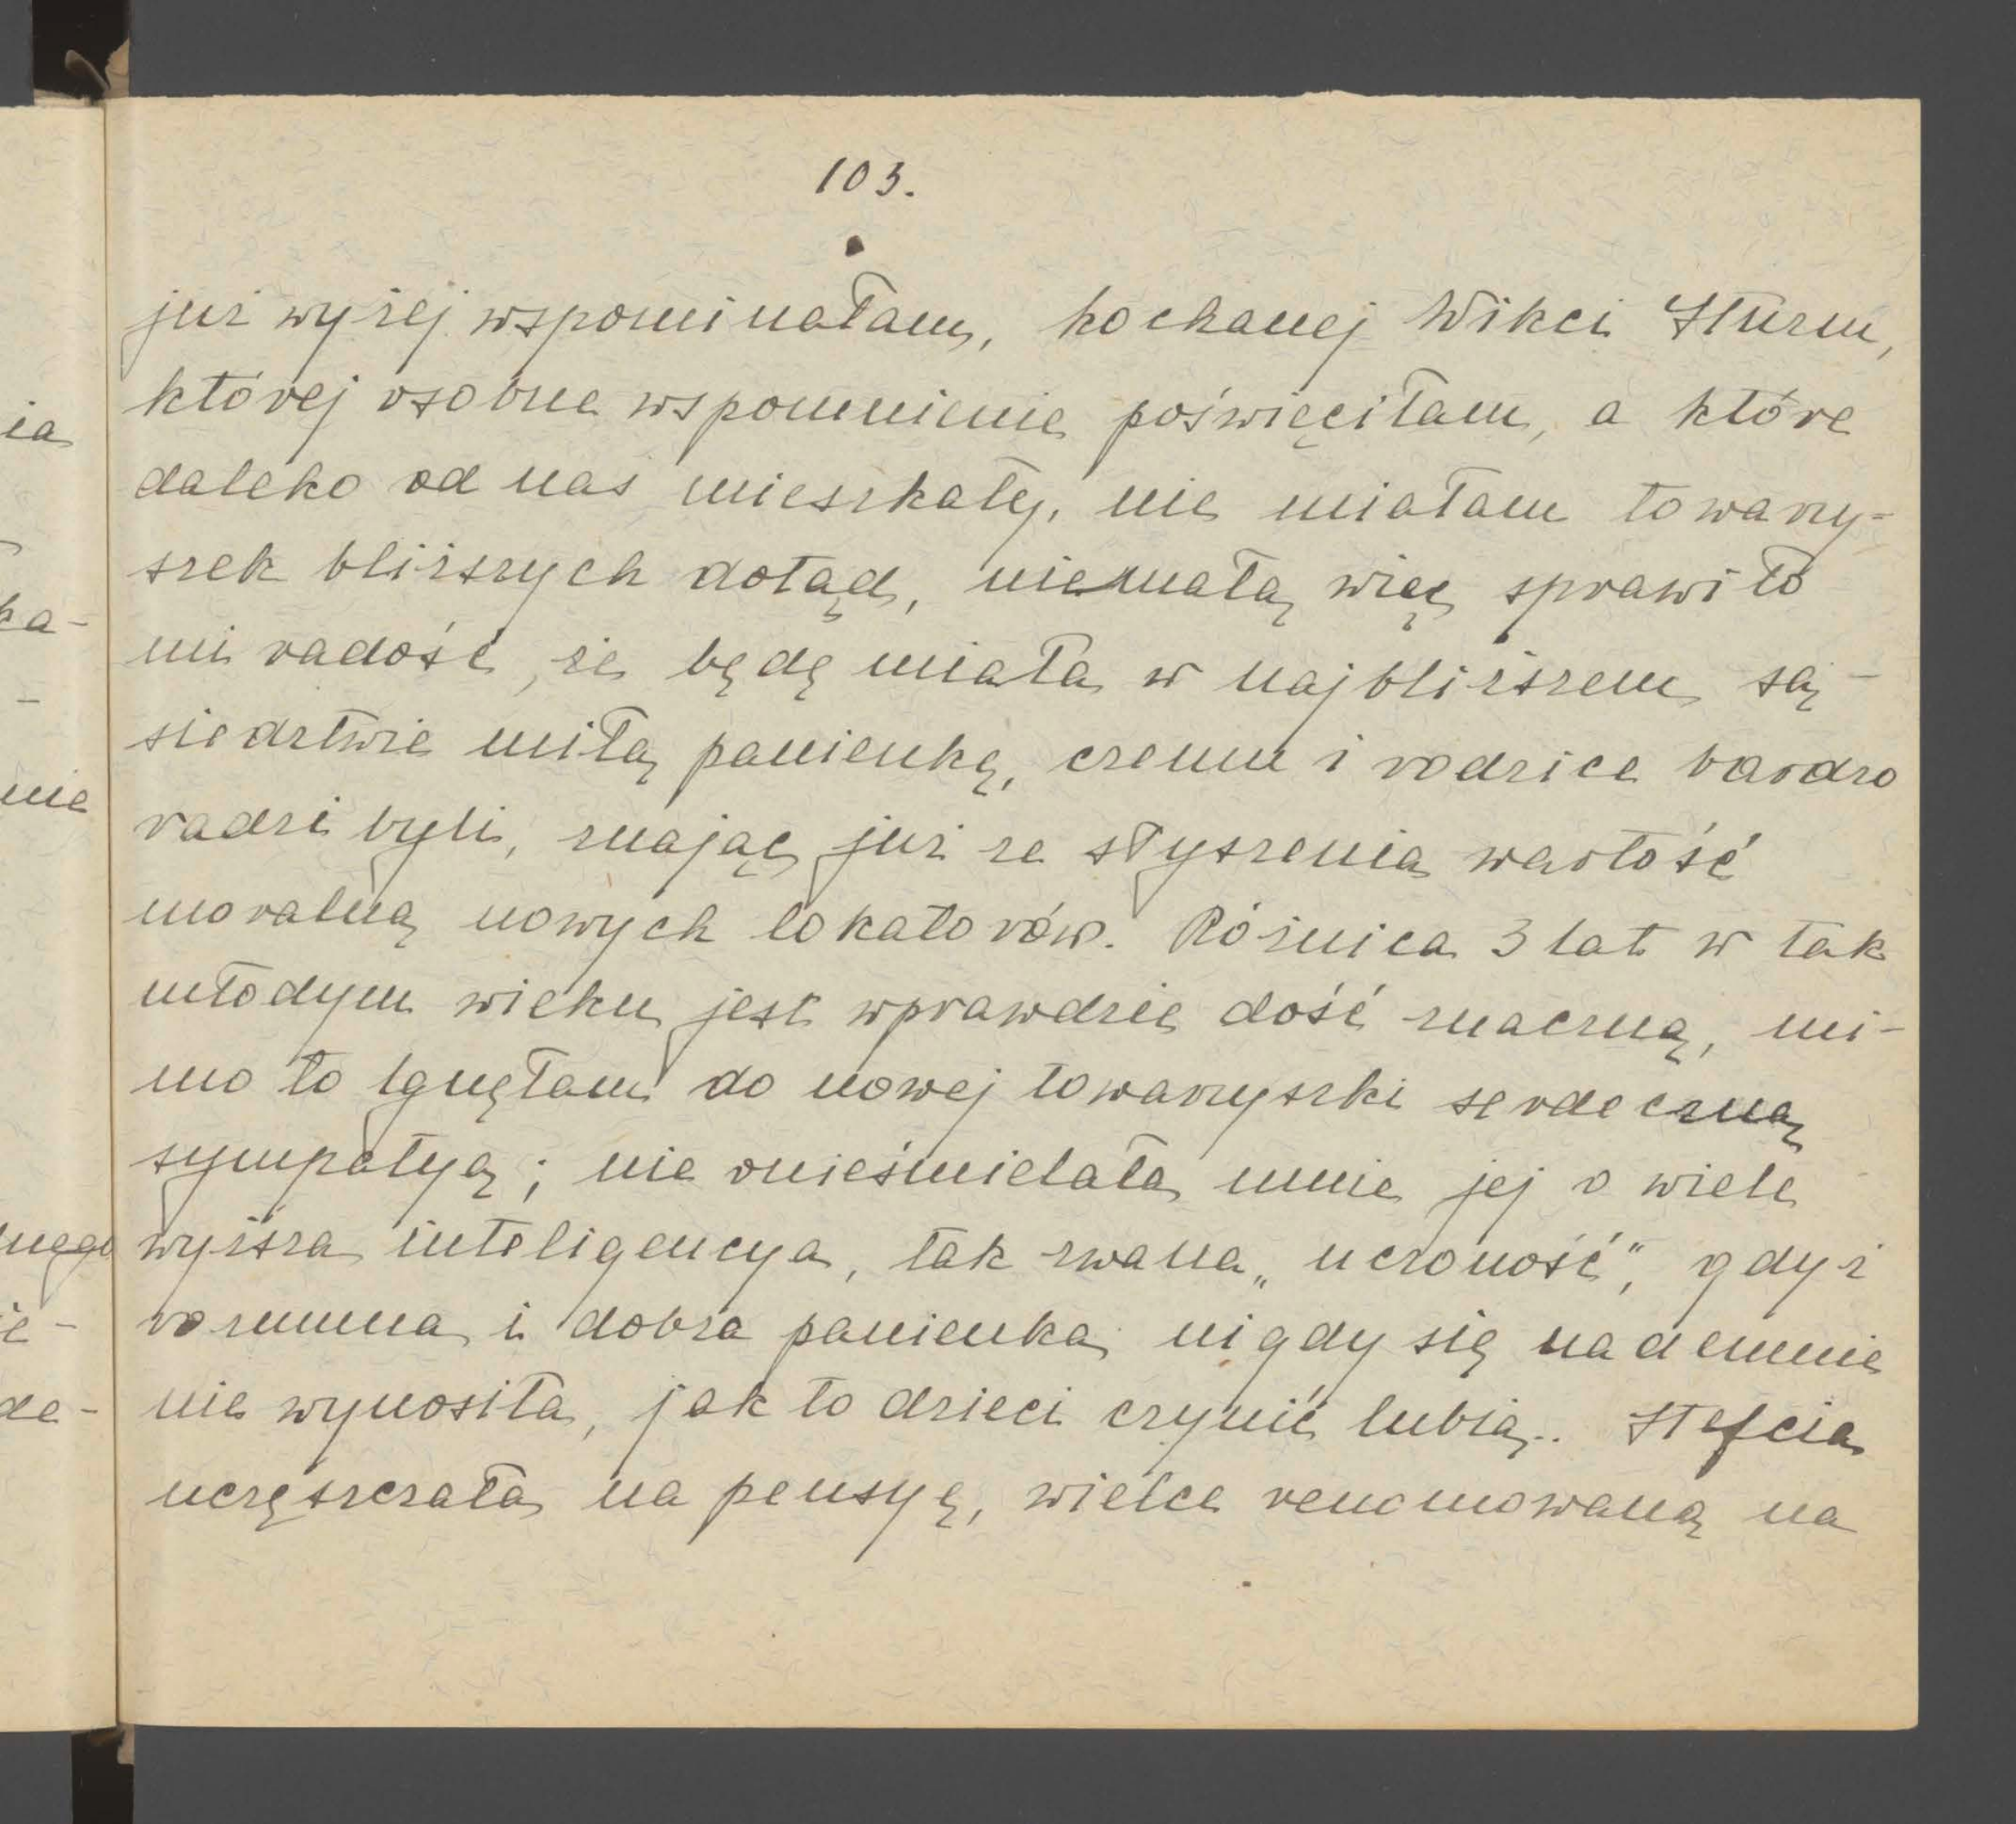 103.
już wyżej wspominałam, kochanej Wikci Sturm,
której osobne wspomnienie poświęciłam, a które
daleko od nas mieszkały, nie miałam towarzy-
szek bliższych dotąd, niemałą więc sprawiło
mi radość, że będę miała w najbliższem są-
siedztwie miłą panienkę, czemu i rodzice bardzo
radzi byli, znając już ze słyszenia wartość
moralną nowych lokatorów. Różnica 3 lat w tak
młodym wieku jest wprawdzie dość znaczną, mi-
mo to lgnęłam do nowej towarzyszki serdeczną
sympatyą; nie onieśmielała mnie jej o wiele
wyższa inteligencya, tak zwana „uczoność", gdyż
rozumna i dobra panienka nigdy się nademnie
nie wynosiła, jak to dzieci czynić lubią.. Stefcia
uczęszczała na pensyę, wielce renomowaną na
ia
ka-
nie
nego
ie-
de-